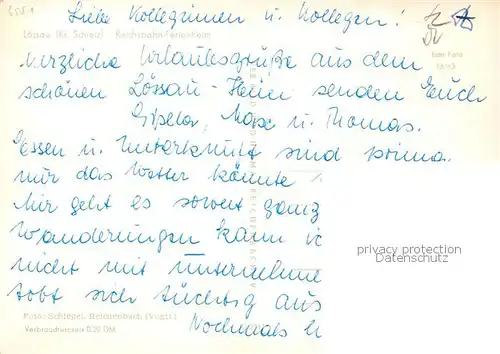 Liebe Kolleginnen u. Kollegen!
Lössau (Kr. Schleiz) Reichsbahn-Ferienheim
Echt Foto
herzliche Urlaubsgrüße aus dem
schönen Lössau-Heim senden Euch
Gisela, Maxe u. Thomas.
Essen u. Unterkunft sind prima
nur das Wetter könnte
Mir geht es soweit ganz
Wanderungen kann ic
nicht mit unternehme
tobt sich tüchtig aus
privacy protection
Foto: Schlegel, Reichenbach (Vogtl.)
Verbraucherpreis 0,20 DM
Nochmals